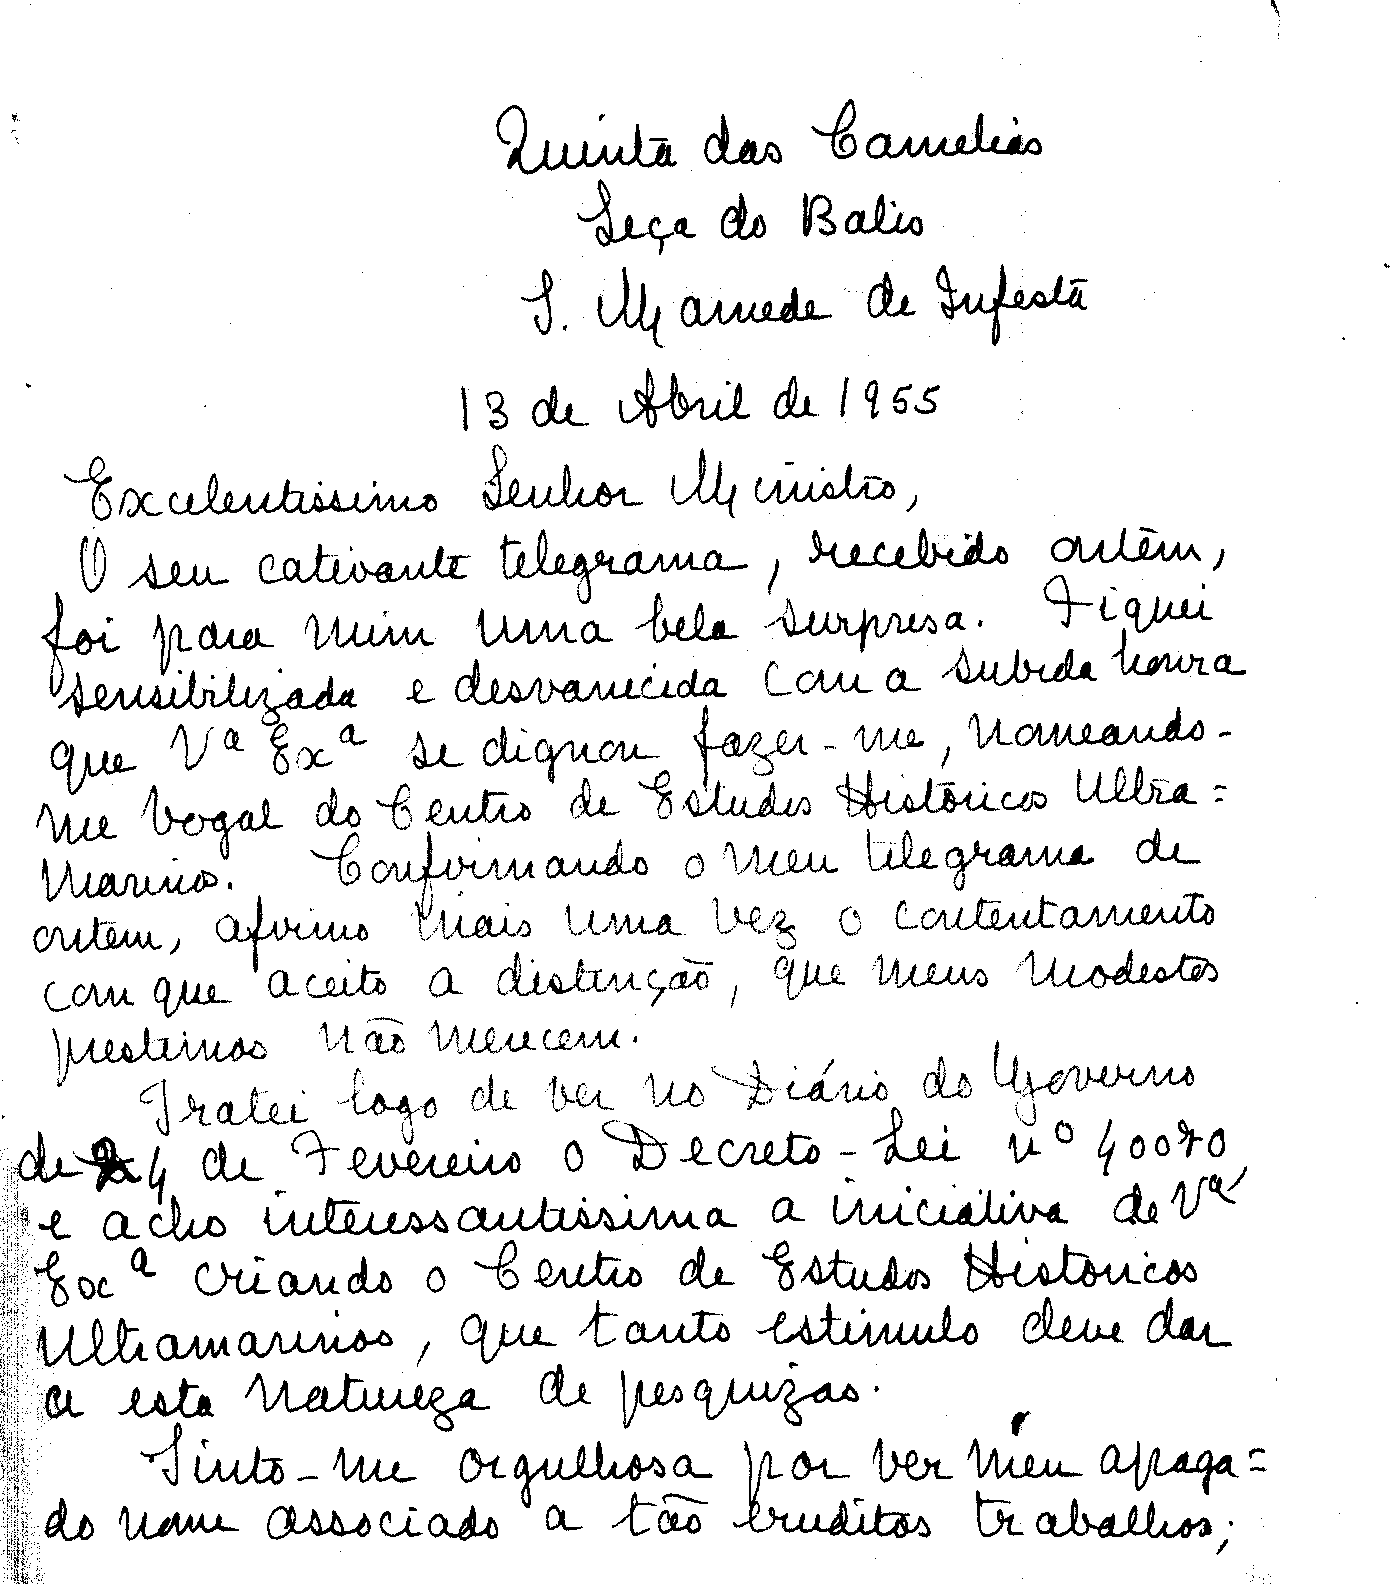 Quinta das Camelias
Leça do Balio
S. Mamede de Infesta
13 de Abril de 1955
Excelentissimo Senhor Ministro,
O seu cativante telegrama, recebido ontem,
foi para mim uma bela surpresa. Fiquei
sensibilizada e desvanecida com a subida honra
que Vª Exª se dignou fazer-me, nomeando-
me vogal do Centro de Estudos Históricos Ultra=
marinos. Confirmando o meu telegrama de
ontem, afirmo mais uma vez o contentamento
com que aceito a distinção, que meus modestos
prestimos não merecem.
Tratei logo de ver no Diário do Governo
de 24 de Fevereiro o Decreto-Lei nº 40070
e acho interessantissima a iniciativa de Vª
Exª criando o Centro de Estudos Históricos
Ultramarinos, que tanto estimulo deve dar
a esta natureza de pesquizas.
Sinto-me orgulhosa por ver meu apaga=
do nome associado a tão eruditos trabalhos;